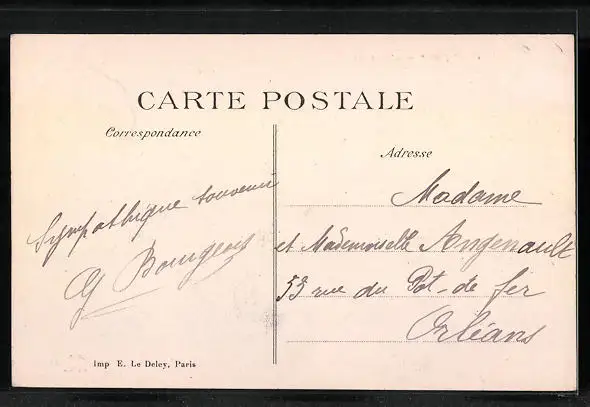 CARTE POSTALE
Correspondance
Adresse
Sympathique souvenir
G Bourgeois
Madame
et Mademoiselle Angenault
53 rue du Pot-de fer
Orléans
Imp E. Le Deley, Paris